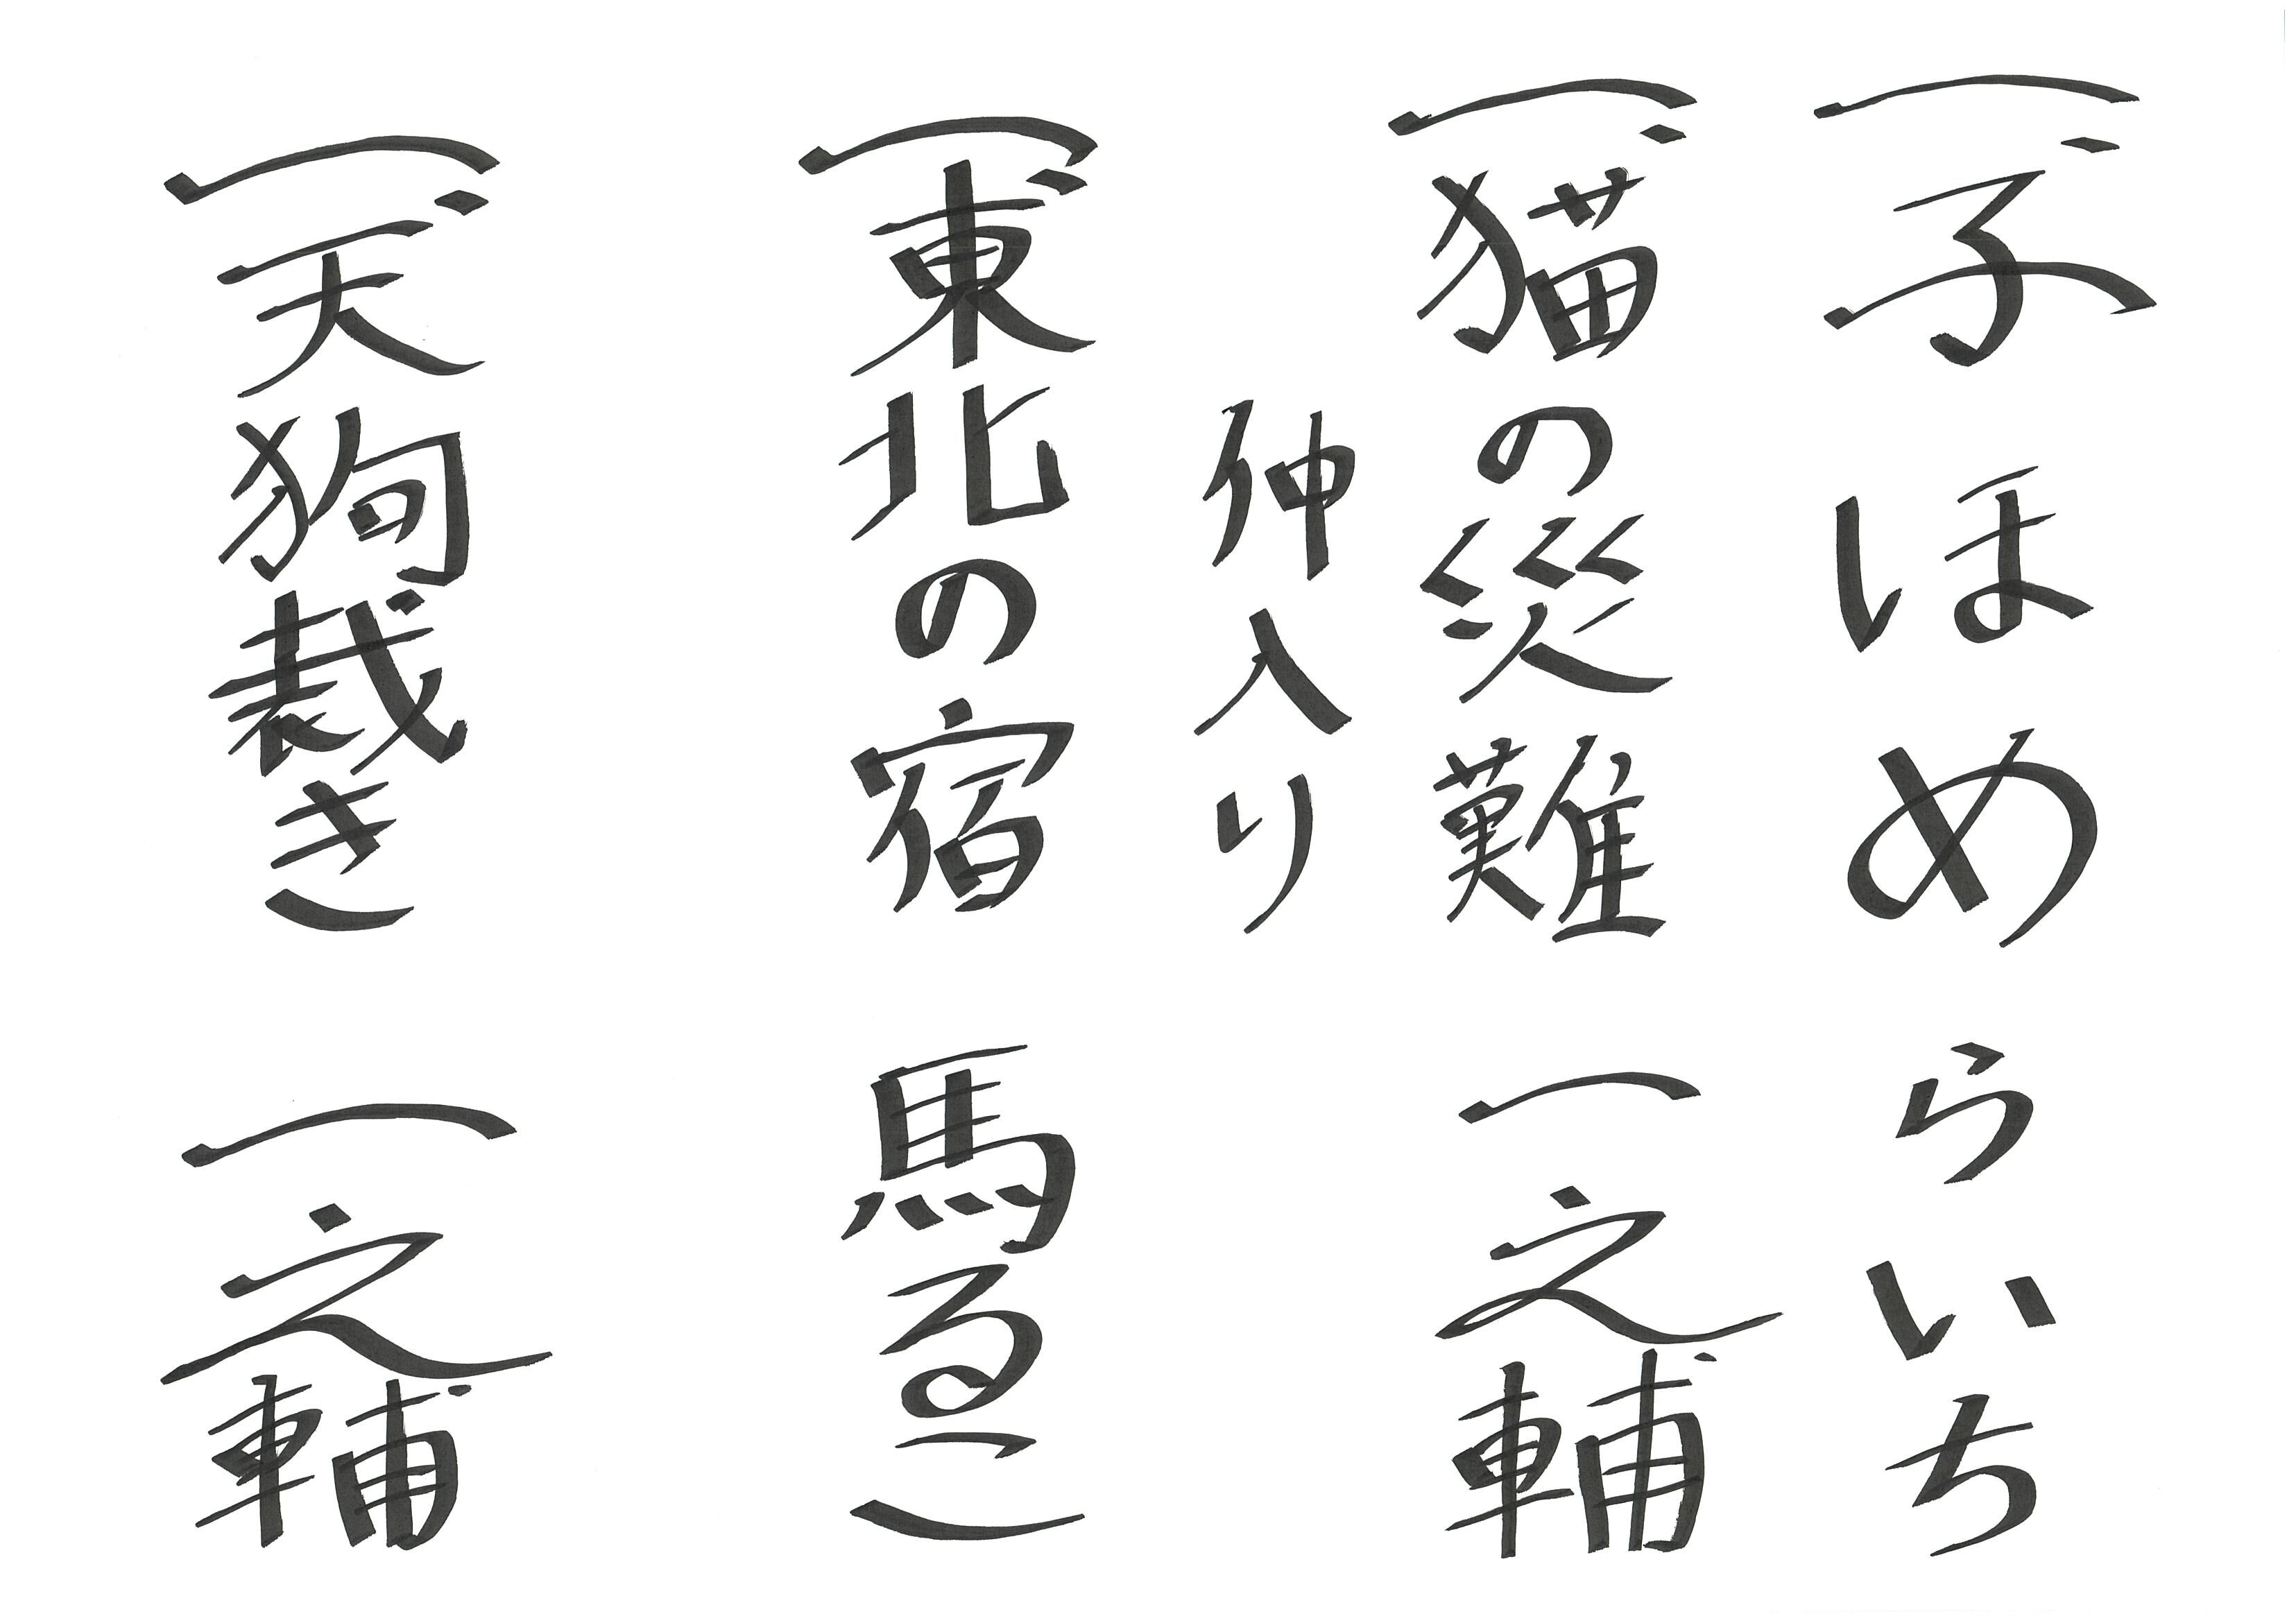 一、子ほめ　らいち
一、猫の災難　一之輔
仲入り
一、東北の宿　馬るこ
一、天狗裁き　一之輔